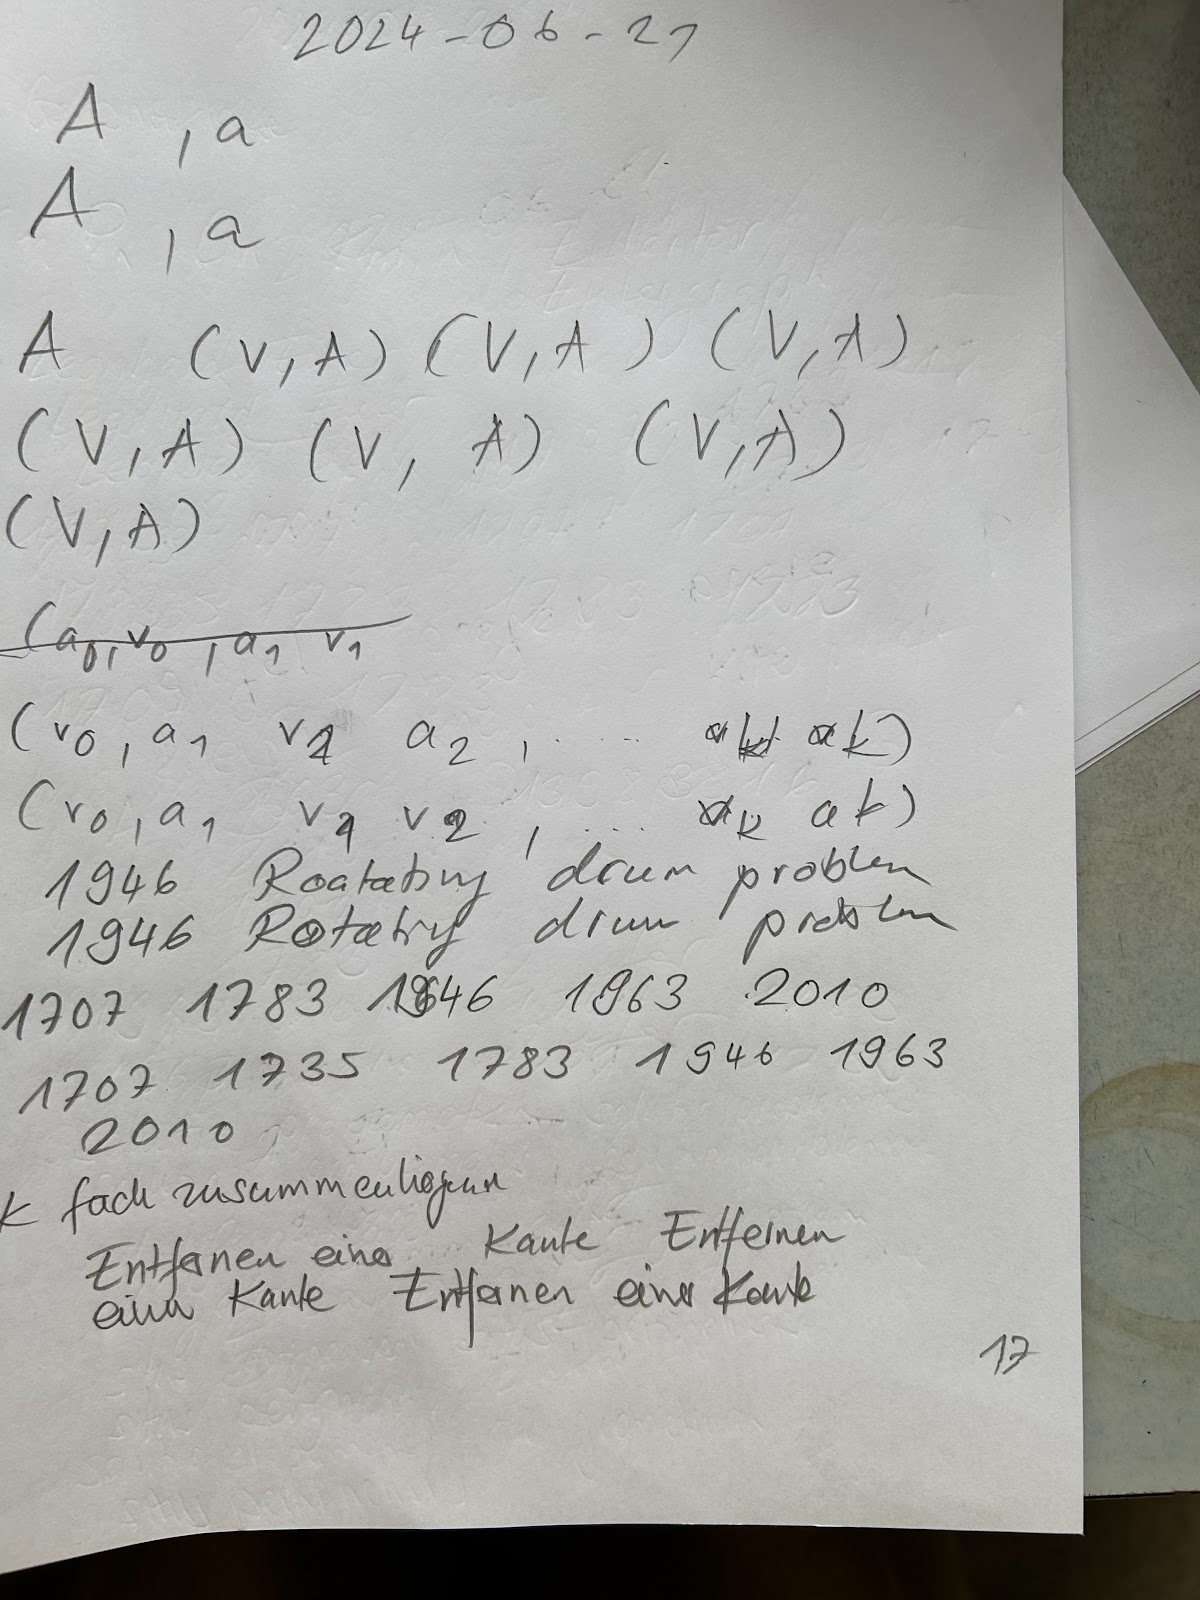 2024-06-21
A , a
A , a
A (V, A) (V, A) (V, A)
(V, A) (V, A) (V, A)
(V, A)
(a0, v0, a1 v1
(v0, a1 v1 a2, ..... ak)
(v0, a1 v1 v2, .... ak)
1946 Roatating drum problem
1946 Rotating drum problem
1707 1783 1946 1963 2010
1707 1735 1783 1946 1963
2010
k fach
Entfernen einer Kante Entfernen
einer Kante Entfernen einer Kante
17